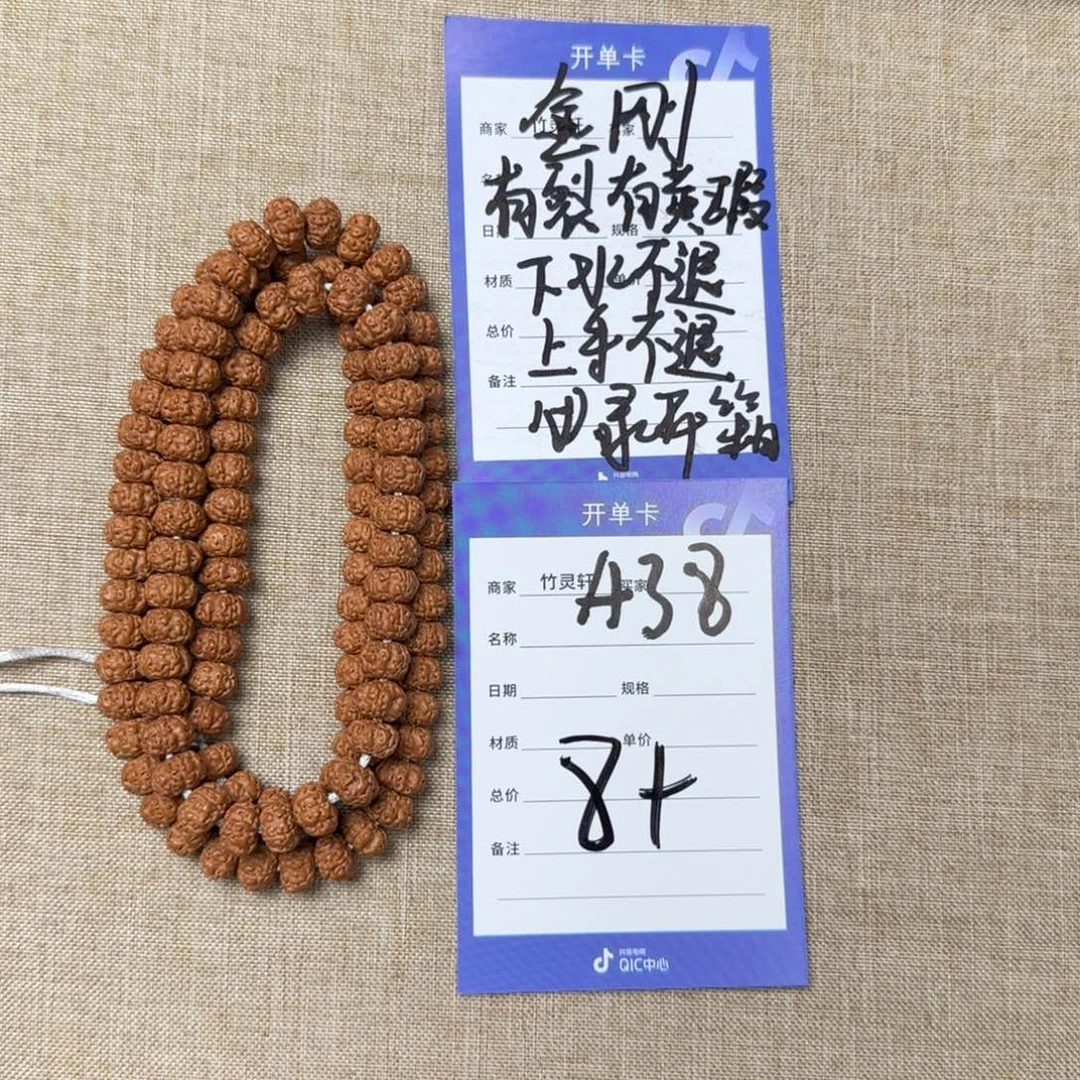 开单卡
金刚
商家 竹灵轩
有裂有黄瑕
规格
下水不退
材质 单价
上手不退
总价
备注
录开箱
抖音电商
开单卡
A38
商家 竹灵轩 买家
名称
日期 规格
材质 单价
8+
总价
备注
抖音电商
QIC中心